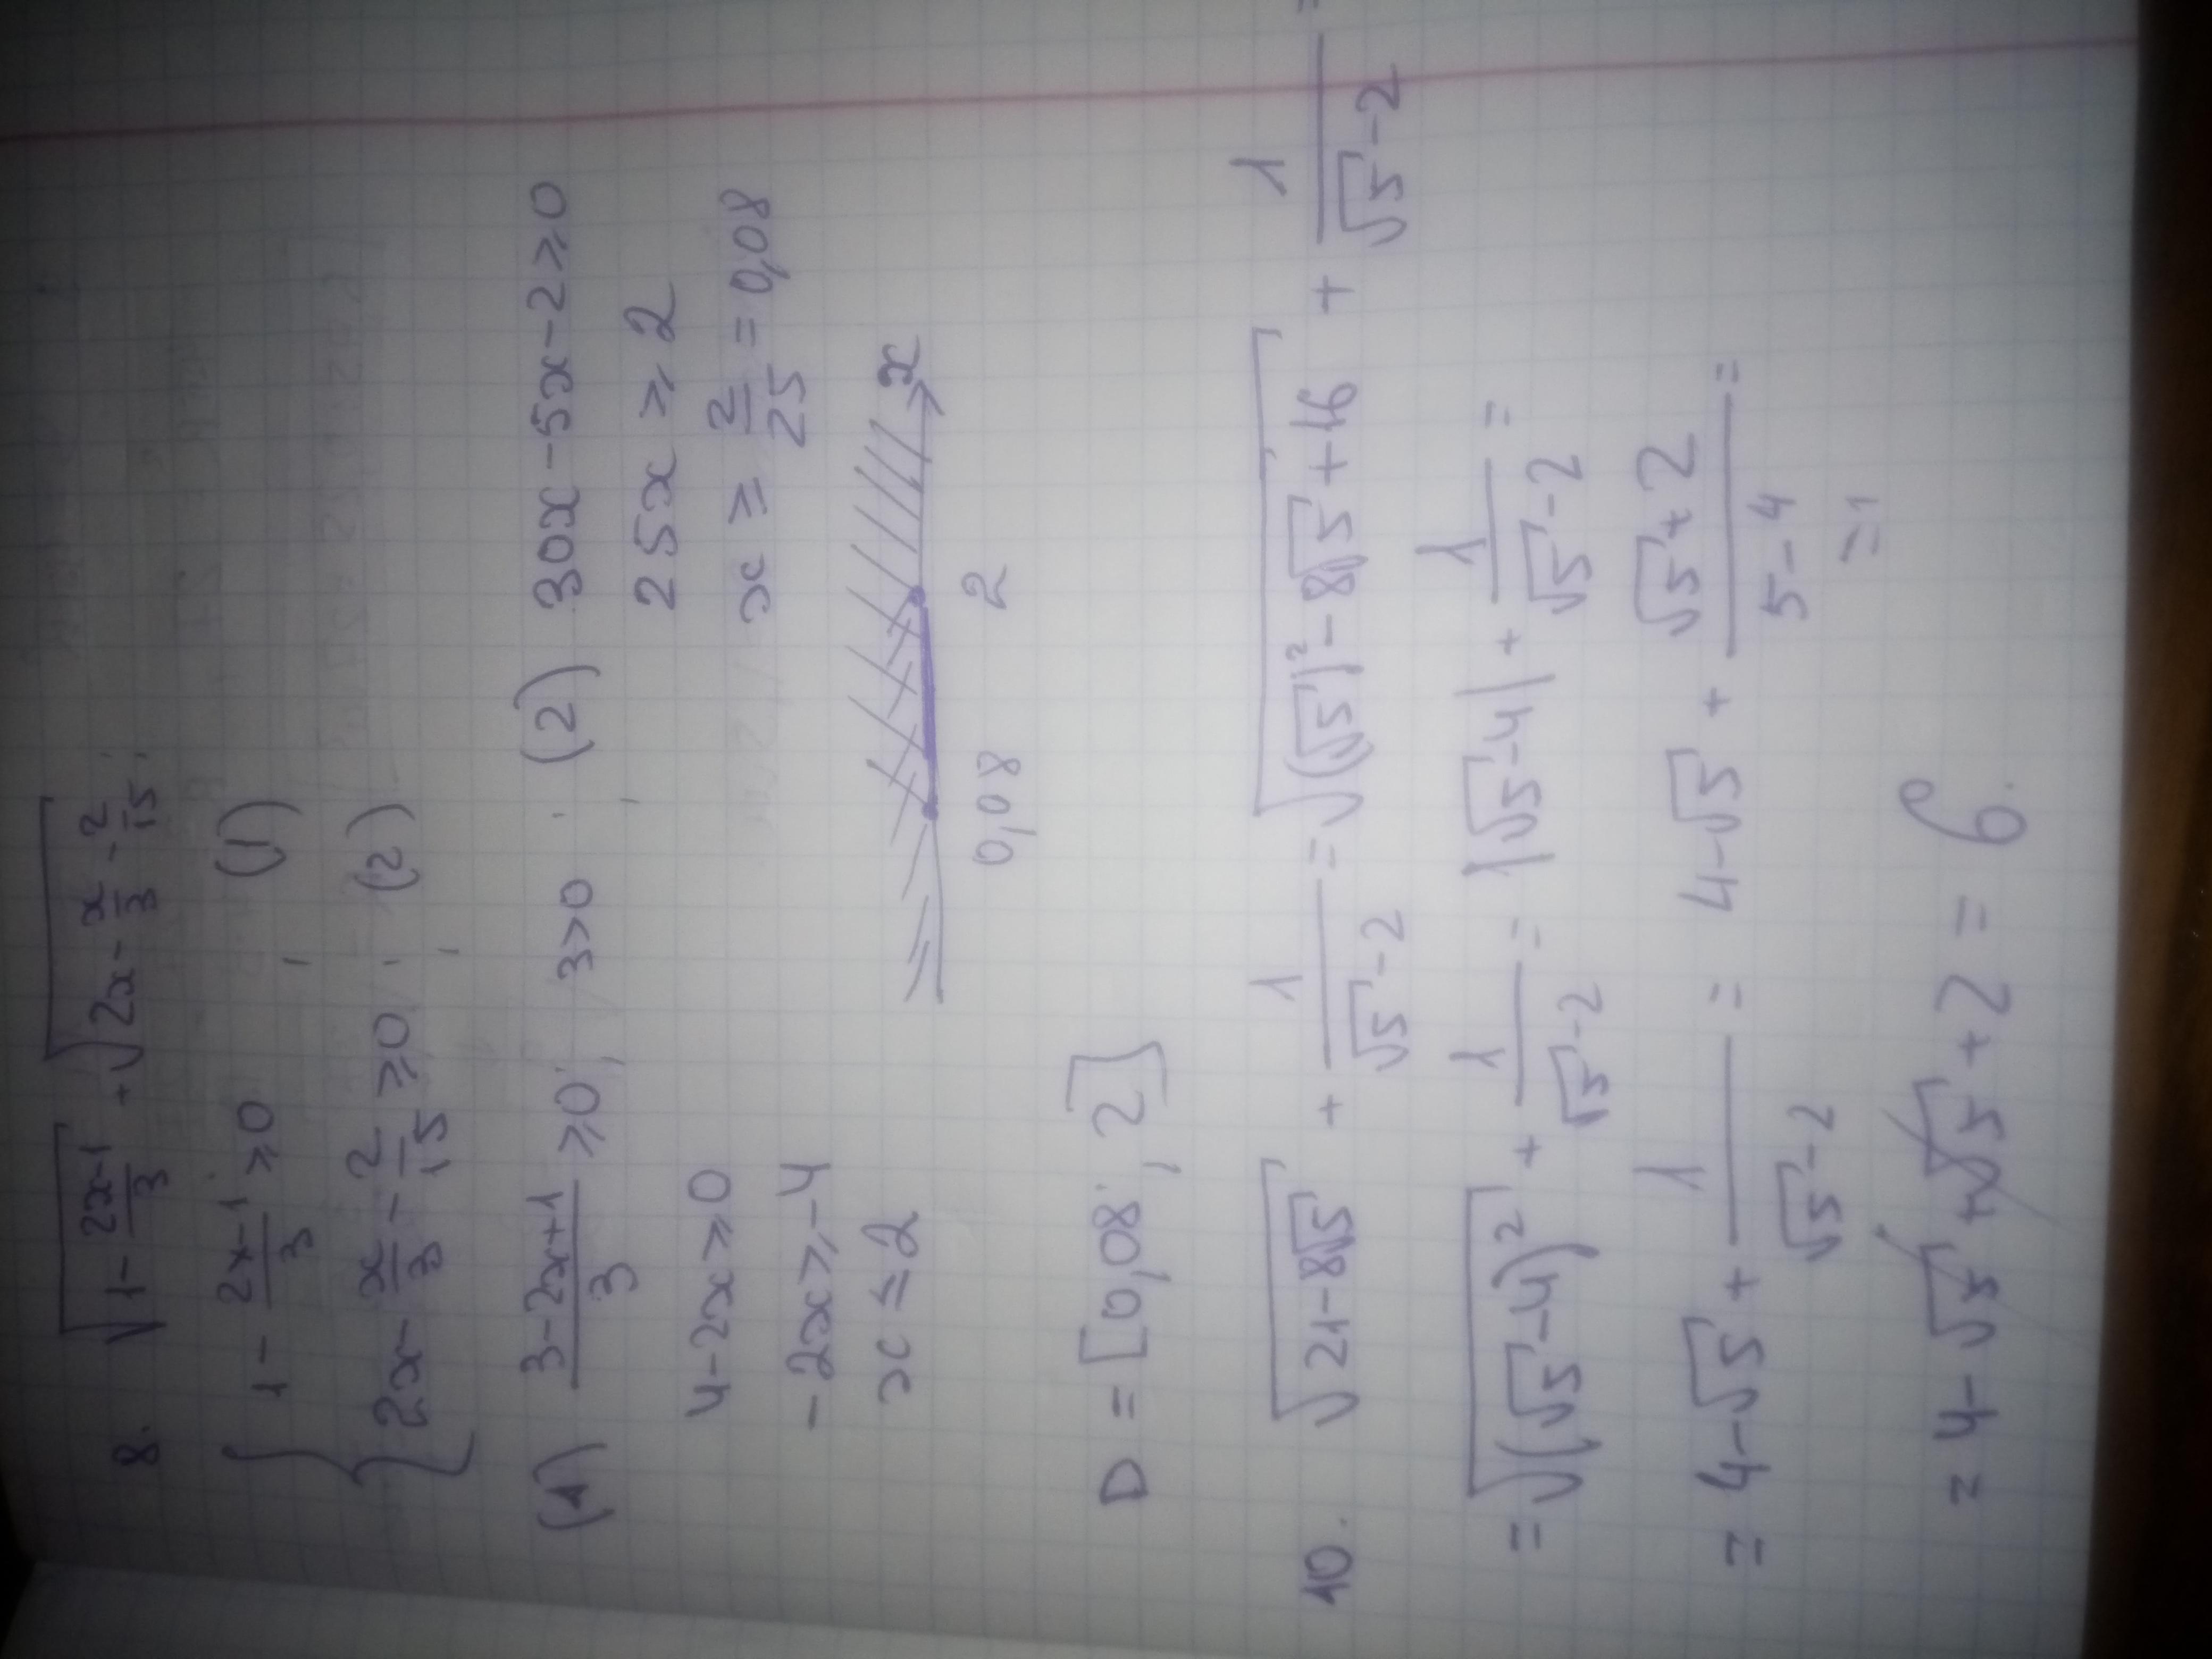 8. √(1 - (2x-1)/3) + √(2x - x/3 - 2/15).
{ 1 - (2x-1)/3 ≥ 0 , (1)
2x - x/3 - 2/15 ≥ 0 , (2)
(1) (3-2x+1)/3 ≥ 0 ; 3>0 ; (2) 30x - 5x - 2 ≥ 0
4 - 2x ≥ 0 25x ≥ 2
-2x ≥ -4 x ≥ 2/25 = 0,08
x ≤ 2 x
0,08 2
D = [0,08 ; 2]
10. √(21-8√5) + 1/(√5-2) = √((√5)² - 8√5 + 16) + 1/(√5-2) =
= √((√5-4)²) + 1/(√5-2) = |√5-4| + 1/(√5-2) =
= 4-√5 + 1/(√5-2) = 4-√5 + (√5+2)/(5-4) =
=1
= 4 - √5 + √5 + 2 = 6.